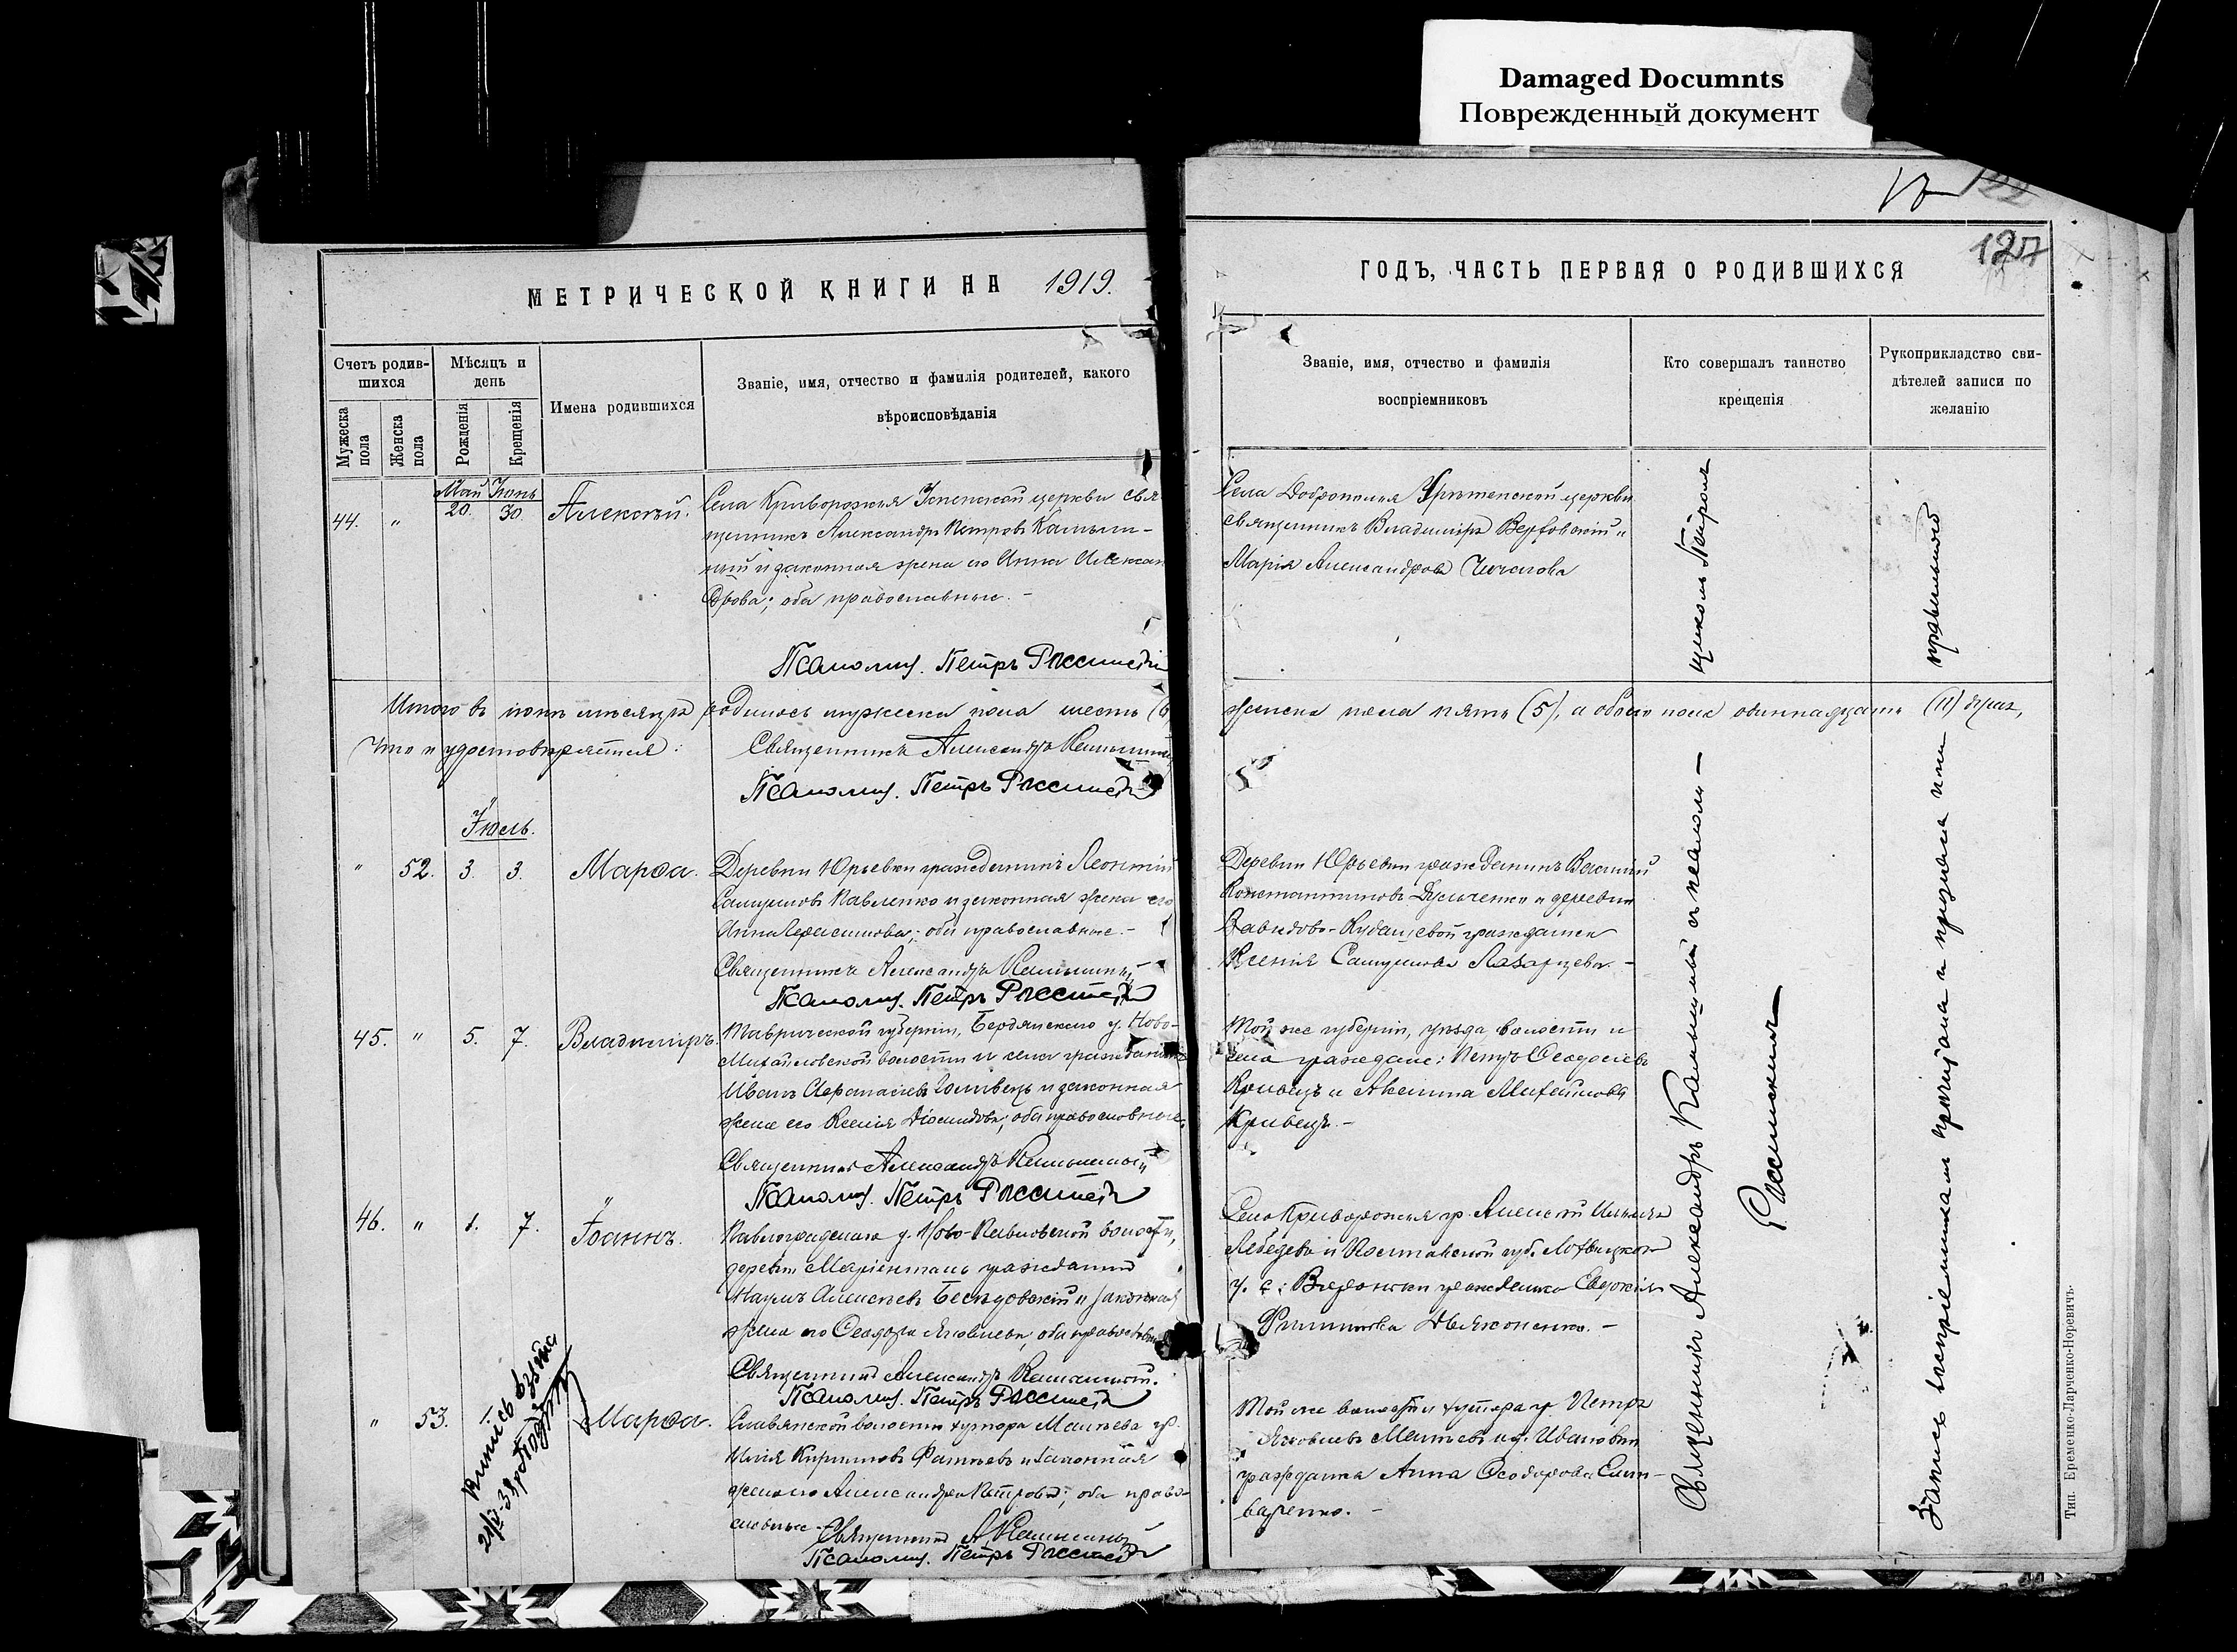 Damaged Documnts
Поврежденный документ
127
МЕТРИЧЕСКОЙ КНИГИ НА 1919.
Счетъ родив-
шихся
Мѣсяцъ и
день
Имена родившихся
Званіе, имя, отчество и фамилія родителей, какого
вѣроисповѣданія
Мужеска
пола
Женска
пола
Рожденія
Крещенія
Май Іюнь
44. " 20. 30. Алексѣй.
Села Криворожья Успенской церкви свя-
щенникъ Александръ Петровъ Камыш-
ный и законная жена его Анна Алексан
дрова; оба православные. -
Псаломщ. Петръ Россинскій
Итого въ іюнѣ мѣсяцѣ родилось мужеска пола шесть (6
что и удостовѣряется:
Священникъ Александръ
Псаломщ. Петръ Россинскій
Іюль.
" 52. 3. 3. Марѳа.
Деревни Юрьевки гражданинъ Леонтій
Самуиловъ Павленко и законная жена его
Анна Герасимова; оба православные. -
Священникъ Александръ
Псаломщ. Петръ Россинскій
45. " 5. 7. Владиміръ.
Таврической губерніи, Бердянскаго у. Ново-
Михайловской волости и села гражданинъ
Иванъ Аѳанасіевъ и законная
жена его Ксенія оба православные.
Священникъ Александръ
Псаломщ. Петръ Россинскій
46. " 1. 7. Іоаннъ.
Павлоградскаго у. Ново-Павловской волости,
деревни Маріенталь гражданинъ
Наумъ Алексѣевъ Бесѣдовскій и законная
жена его Ѳеодора Яковлева, оба православные
Священникъ Александръ
Псаломщ. Петръ Россинскій
" 53. 1. Марѳа.
Выпись взята
Славянской волости хутора Матвѣева гр.
Илія Кирилловъ и законная
жена его Александра Петрова; оба право-
славные. - Священникъ А.
Псаломщ. Петръ Россинскій
ГОДЪ, ЧАСТЬ ПЕРВАЯ О РОДИВШИХСЯ
Званіе, имя, отчество и фамилія
воспріемниковъ
Кто совершалъ таинство
крещенія
Рукоприкладство сви-
дѣтелей записи по
желанію
Села Доброполья церкви
священникъ Владиміръ Вербовскій и
Марія Александрова
женска пола пять (5), а обоего пола одиннадцать (11) душъ,
Деревни Юрьевки гражданинъ Василій
Константиновъ и деревни
гражданка
Ксенія Самуилова Лазарцева. -
Той же губерніи, уѣзда, волости и
села граждане: Петръ Ѳеодосіевъ
Кривецъ и Акилина Михайлова
Кривецъ. -
Села Криворожья гр. Алексѣй
Лебедевъ и Полтавской губ.
гражданка Евдокія
Филиппова Дьяконенко. -
Той же волости и хутора гр. Петръ
Яковлевъ Матвѣевъ и д. Ивановки
гражданка Анна Ѳеодорова
Священникъ Александръ Камышный съ псалом-
щикомъ Петромъ
Россинскимъ
Запись воспріемникамъ прочитана и признана ими
правильной
Тип. Еременко-Ларченко-Норевичъ.